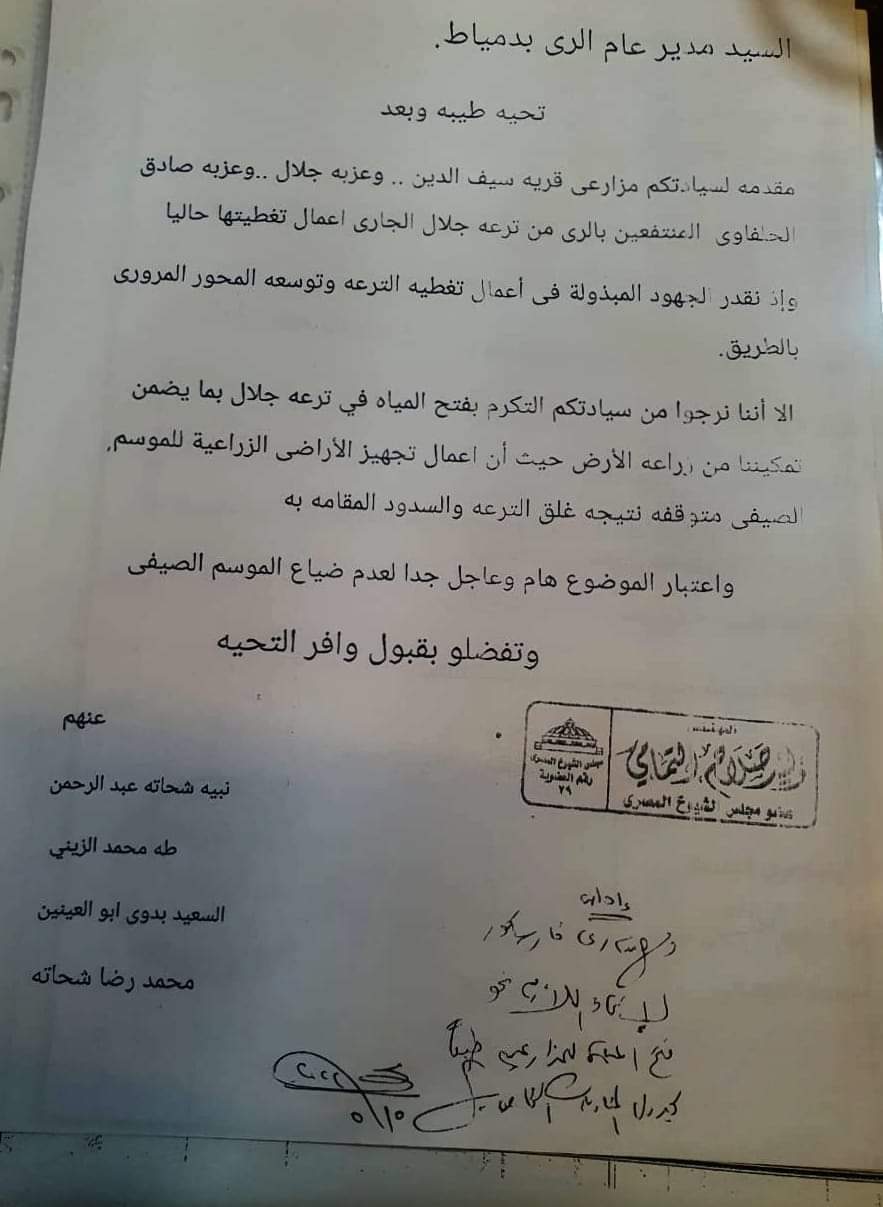 السيد مدير عام الرى بدمياط.
تحيه طيبه وبعد
مقدمه لسيادتكم مزارعى قريه سيف الدين .. وعزبه جلال ..وعزبه صادق
الحلفاوى المنتفعين بالرى من ترعه جلال الجارى اعمال تغطيتها حاليا
وإذ نقدر الجهود المبذولة فى أعمال تغطيه الترعه وتوسعه المحور المرورى
بالطريق.
الا أننا نرجوا من سيادتكم التكرم بفتح المياه في ترعه جلال بما يضمن
تمكيننا من زراعه الأرض حيث أن اعمال تجهيز الأراضى الزراعية للموسم
الصيفى متوقفه نتيجه غلق الترعه والسدود المقامه به
واعتبار الموضوع هام وعاجل جدا لعدم ضياع الموسم الصيفى
وتفضلو بقبول وافر التحيه
المهندس
التمامي
عضو مجلس الشيوخ المصرى
مجلس الشيوخ المصرى
رقم العضوية
٢٩
عنهم
نبيه شحاته عبد الرحمن
طه محمد الزيني
السعيد بدوى ابو العينين
محمد رضا شحاته
فارسكور
اللازم نحو
فتح المياه للمزارعين طبقاً
٥/١٥